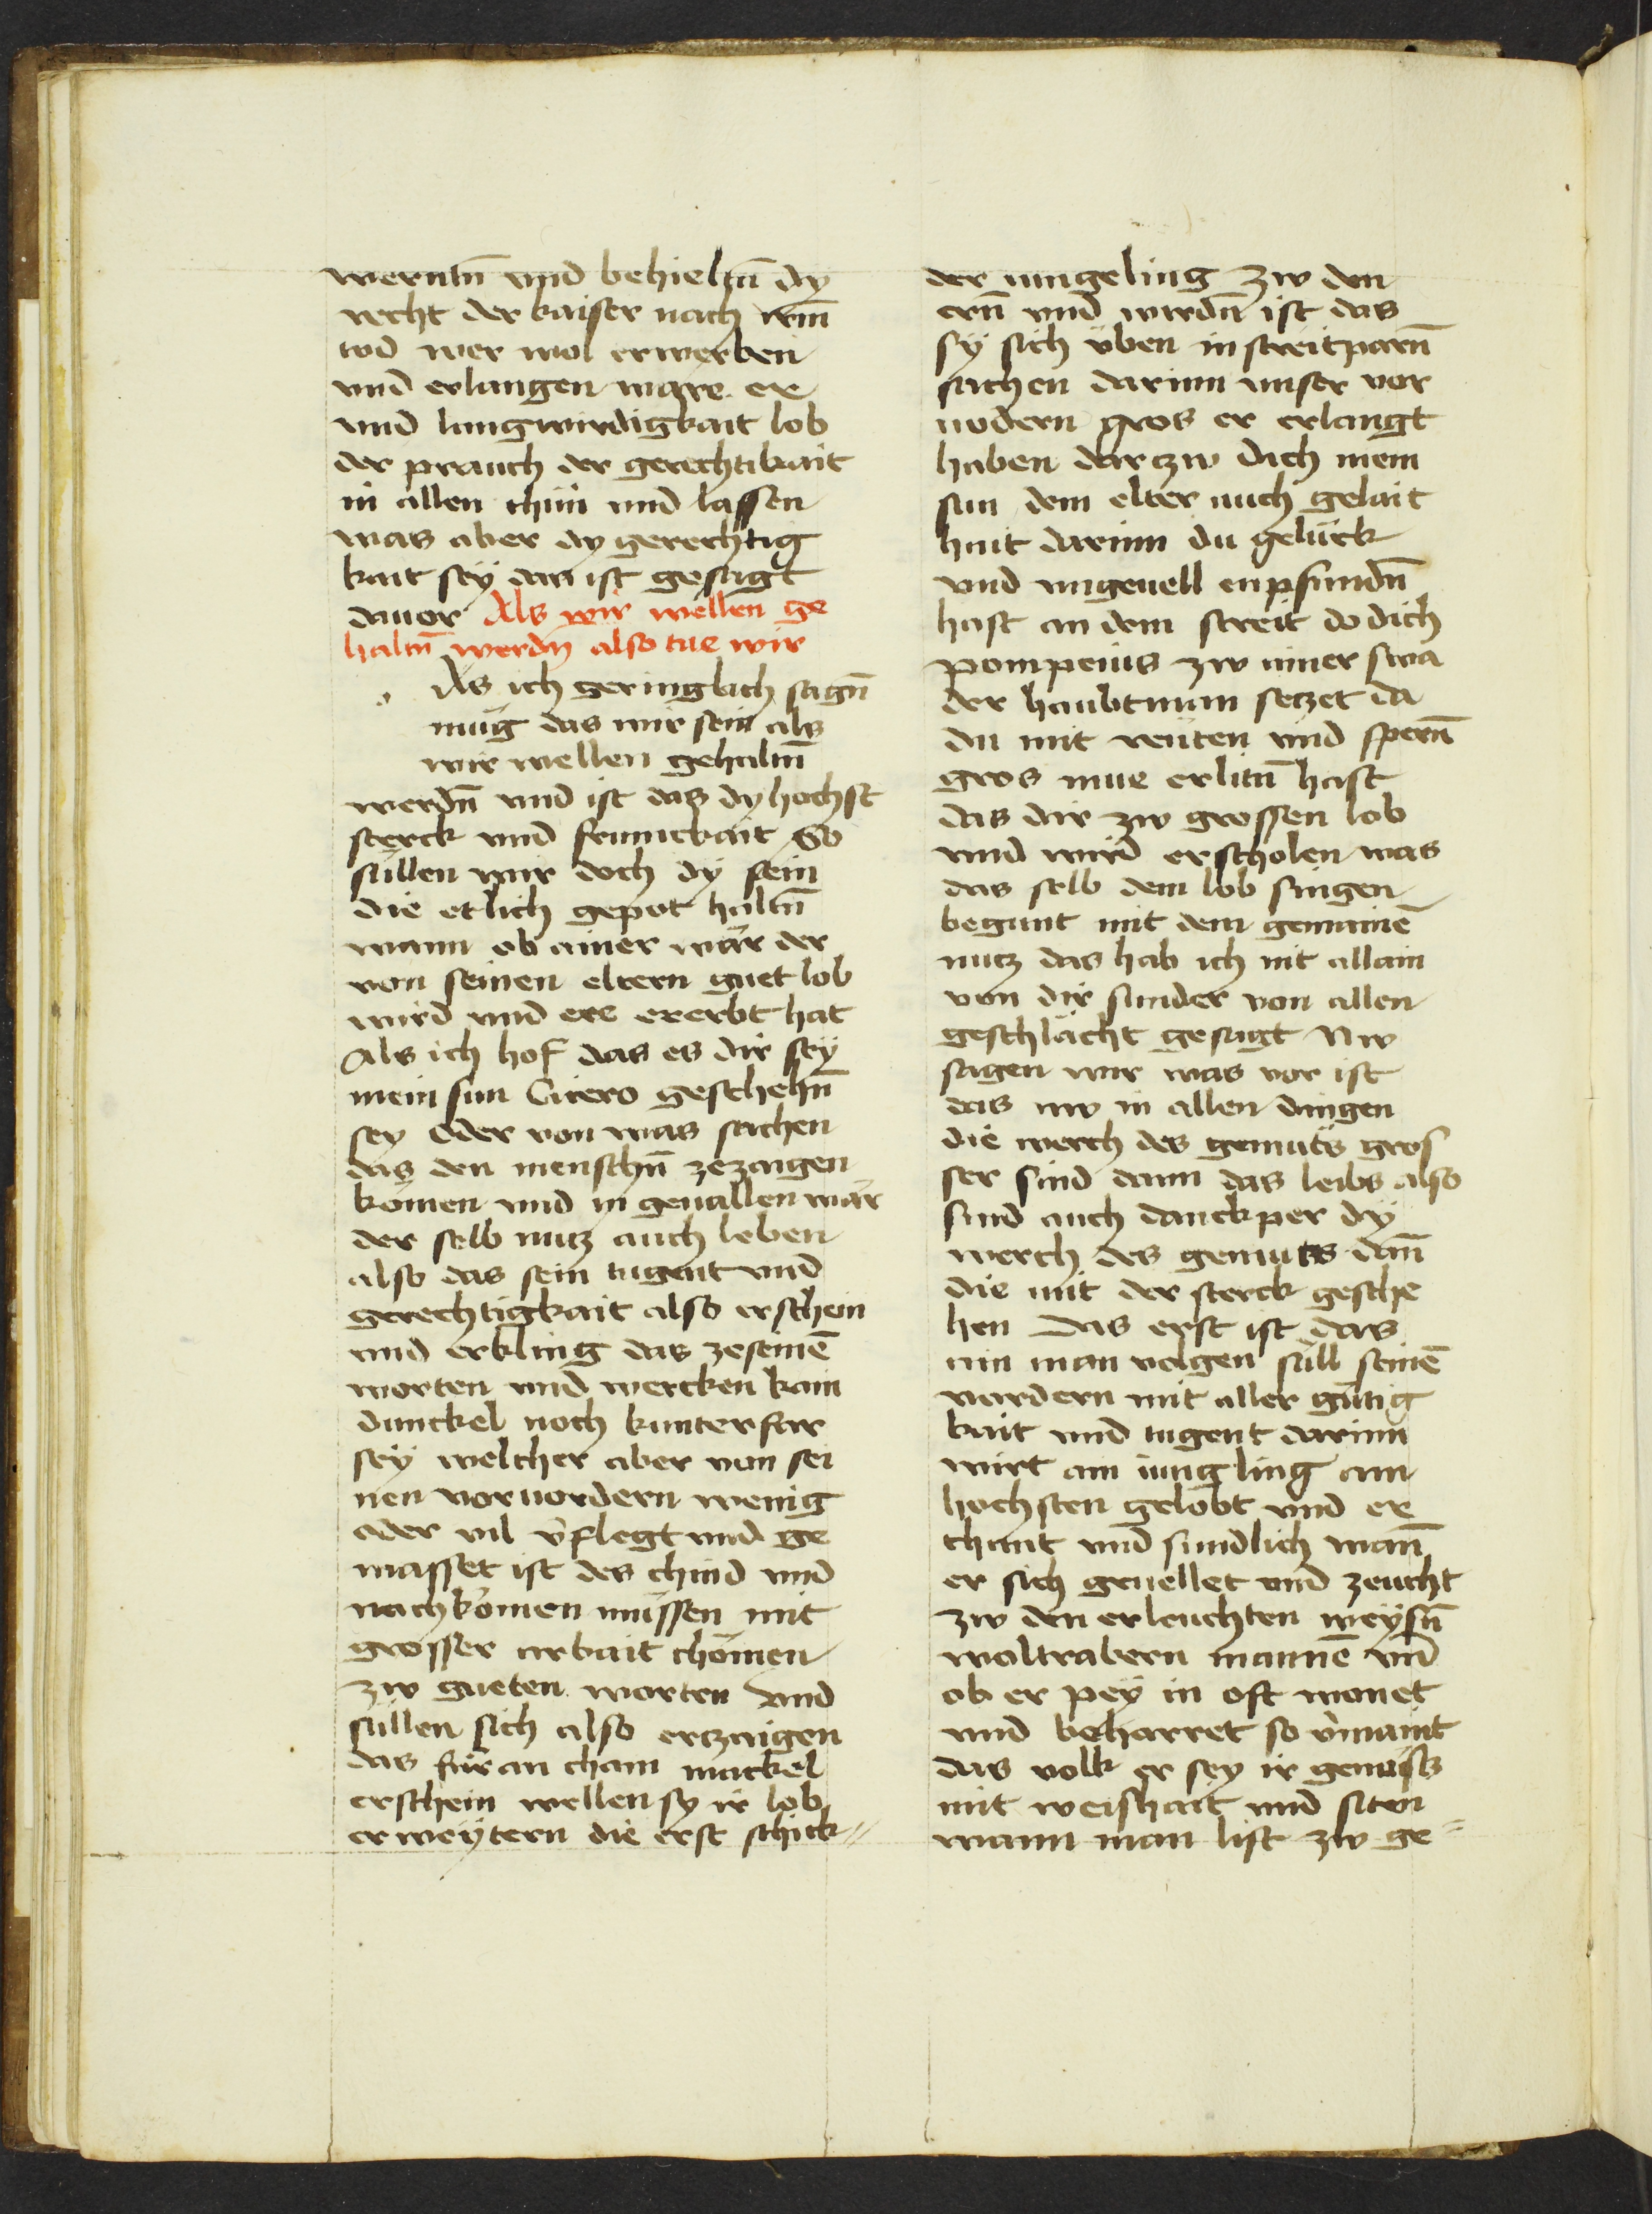 werntñ vnd behieltñ dy
recht der kaiser nach irm̃
tod wer wol erwerben
vnd erlangen ware er
vnd langwirdigkait lob
der prauch der gerechtikait
in allen thun vnd lassen
was aber dy gerechtig
kait sey das ist gesagt
dauor Als wir wellen ge
haltñ werdñ also tue wir
As ich geringlich sagñ
mug das wir sein als
wir wellen gehaltñ
werdñ vnd ist das dy hochst
sterck vnd frumckait So
sullen wir doch dy sein
die etlich gepot haltñ
wann ob ainer wär der
von seinen eltern guet lob
wird vnd ere ererbt hat
Als ich hof das es dir sey
mein sun Cicero geschehñ
sey oder von was sachen
das den menschñ zezaigen
komen vnd in geuallen wär
der selb mug auch leben
also das sein tugent vnd
gerechtigkait also erschein
vnd erkling das zeseinē
worten vnd wercken kain
dunckel noch kunterfar
sey welcher aber von sei
nen voruordern wenig
oder vil v̉flegt vnd ge
masset ist des chind vnd
nachkömen müssen mit
grosser arbait chömen
zw gueten worten vnd
süllen sich also erczaigen
das für an chain mackel
erschein wellen sy ir lob
erweytern die erst schick//
der iungeling zw den
ern̄ vnd wirdñ ist das
sy sich üben in streitparñ
sachen darinn vnser vor
uodern gros er erlangt
haben darczw dich mein
sun dem elter auch gelait
hait darinn du gelück
vnd vngeuell enpfundñ
hast an dem streit do dich
pompeius zw ainer swa
der haubtman seczet da
du mit reiten vnd sperñ
gros mue erlitñ hast
das dir zw grossen lob
vnd wird erscholen was
das selb dem lob singen
begunt mit dem gemainē
nucz das hab ich nit allain
von dir sunder von allen
geschlächt gesagt Nw
sagen wir was vor ist
das nw in allen dingen
die werch des gemüts gros
ser sind dann das leibs also
sind auch danckper dy
werch des gemuts dañ
die mit der sterck gesche
hen Das erst ist das
ain man volgen süll seinē
vordern mit aller gütig
kait vnd tugent darinn
wirt ain iungling am
hochsten gelobt vnd er
chant vnd sundlich wañ
er sich gevellet vnd zeucht
zw den erleuchten weysñ
woltrabern mannē vñ
ob er pey in oft wonet
vnd beharret so v̉maint
das volk er sey ir genoss
mit weishait vnd siten
wann man list zw ge=